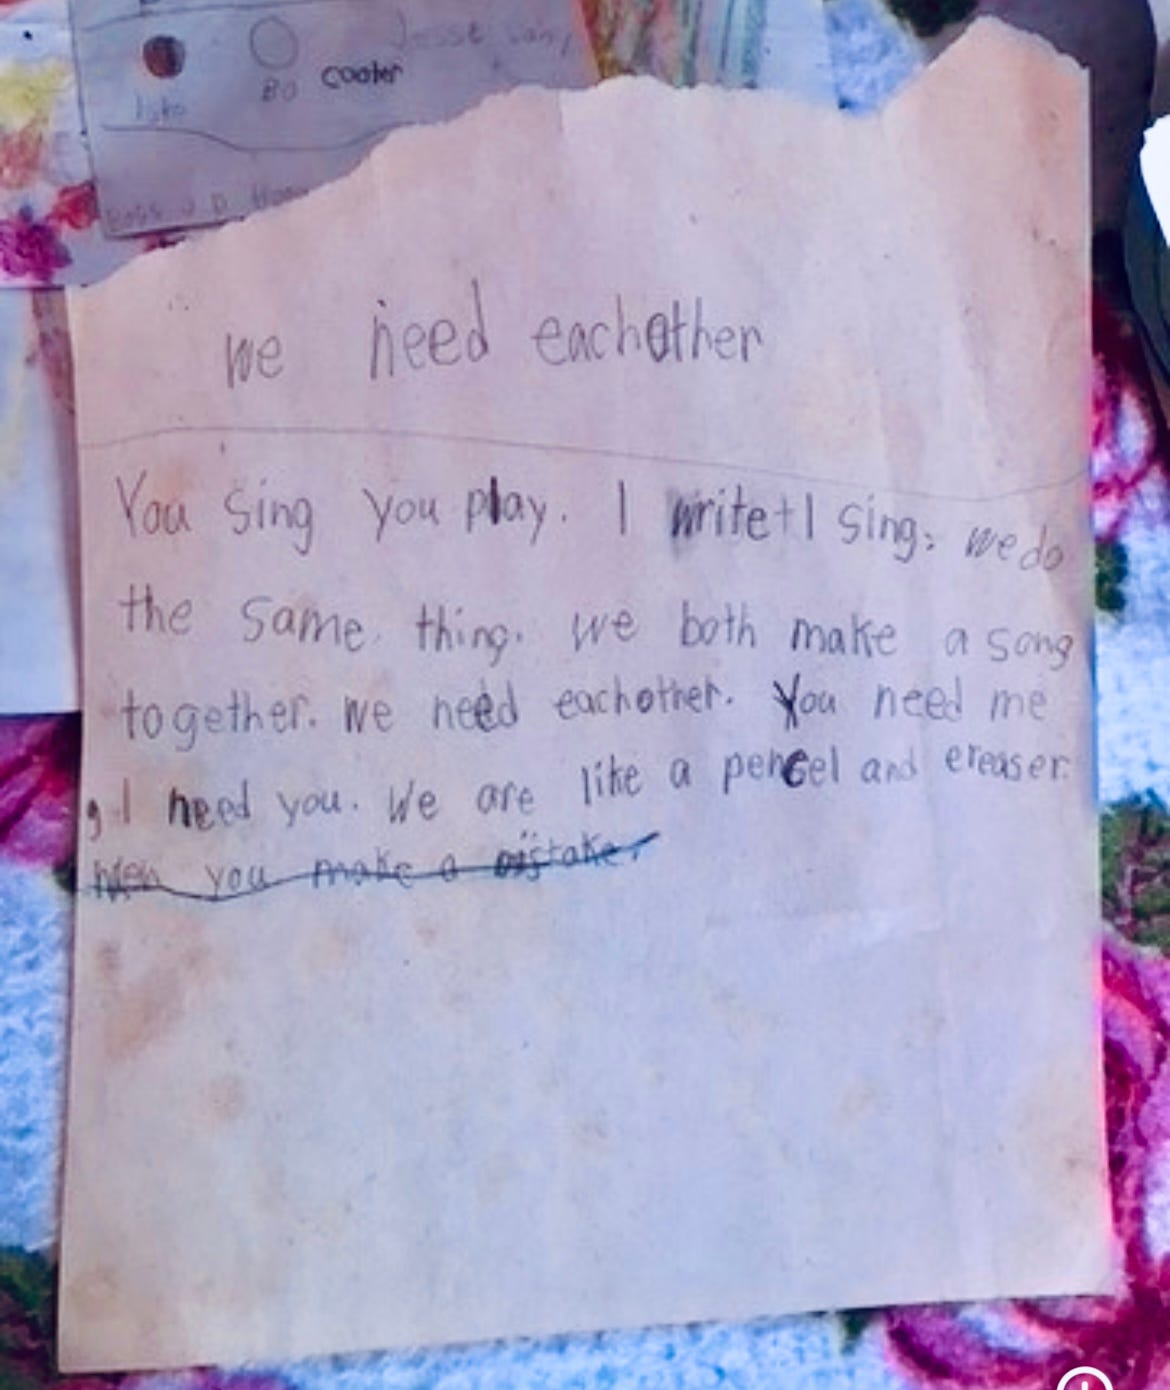 Jesse
Bo cooter
we need eachother
You sing you play. I write + I sing. we do
the same thing. we both make a song
together. we need eachother. You need me
I need you. We are like a pencel and ereaser.
When you make a mistake.